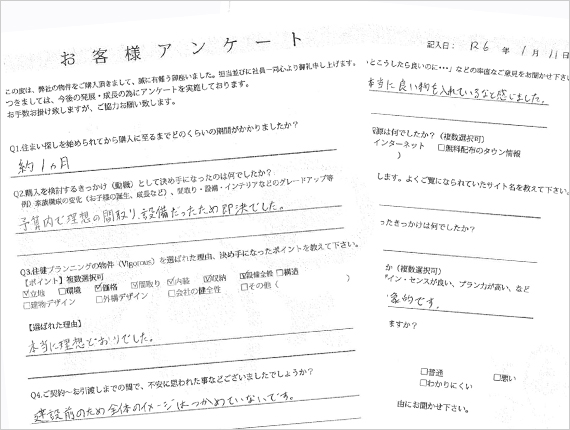 お客様アンケート
この度は、弊社の物件をご購入頂きまして、誠に有難う御座いました。担当並びに社員一同心より御礼申し上げます。
つきましては、今後の発展・成長の為にアンケートを実施しております。
お手数お掛け致しますが、ご協力お願い致します。
Q1.住まい探しを始められてから購入に至るまでどのくらいの期間がかかりましたか？
約1ヵ月
Q2.購入を検討するきっかけ（動機）として決め手になったのは何でしたか？
例）家族構成の変化（お子様の誕生、成長など）、間取り・設備・インテリアなどのグレードアップ等
予算内で理想の間取り、設備だったため即決でした。
Q3.住健プランニングの物件（Vigorous）を選ばれた理由、決め手になったポイントを教えて下さい。
【ポイント】複数選択可
☑立地 □環境 ☑価格 ☑間取り ☑内装 ☑収納 ☑設備全般 □構造
□建物デザイン □外構デザイン □会社の健全性 □その他（ ）
【選ばれた理由】
本当に理想どおりでした。
Q4.ご契約～お引渡しまでの間で、不安に思われた事などございましたでしょうか？
建設前のため全体のイメージはつかめていないです。
記入日： R6 年 1月 11日
とこうしたら良いのに・・・」などの率直なご意見をお聞かせ下さい
本当に良い物を入れているなと感じました。
源は何でしたか？（複数選択可）
インターネット □無料配布のタウン情報
）
します。よくご覧になられていたサイト名を教えて下さい。
ったきっかけは何でしたか？
か（複数選択可）
ザイン・センスが良い、プラン力が高い、など
象的です。
ますか？
□普通 □悪い
□わかりにくい
由にお聞かせ下さい。